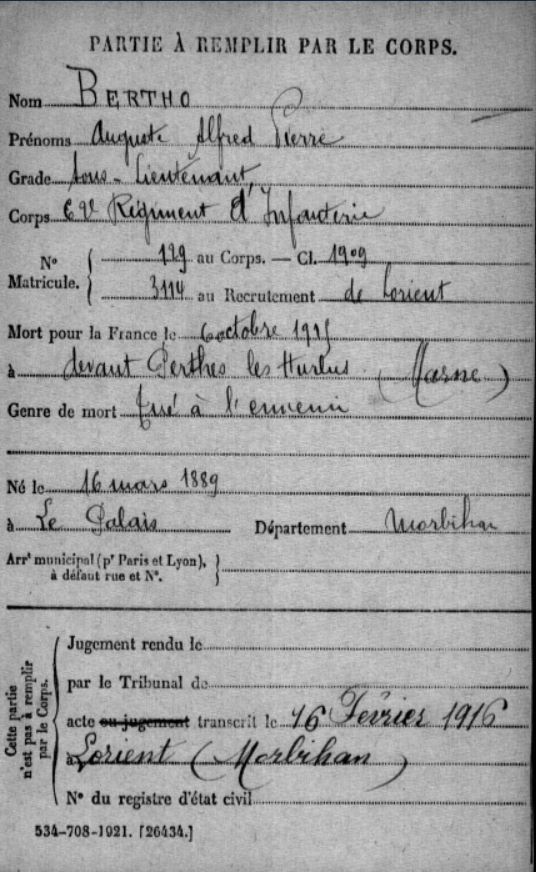 PARTIE À REMPLIR PAR LE CORPS.
Nom BERTHO
Prénoms Auguste Alfred Pierre
Grade Sous-Lieutenant
Corps 62e Régiment d'Infanterie
No Matricule. 129 au Corps. — Cl. 1909
3114 au Recrutement de Lorient
Mort pour la France le 6 octobre 1915
à devant Perthes les Hurlus (Marne)
Genre de mort Tué à l'ennemi
Né le 16 mars 1889
à Le Palais Département Morbihan
Arrt municipal (pr Paris et Lyon),
à défaut rue et No.
Cette partie n'est pas à remplir par le Corps.
Jugement rendu le
par le Tribunal de
acte ou jugement transcrit le 16 Février 1916
à Lorient (Morbihan)
No du registre d'état civil
534-708-1921. [26434.]